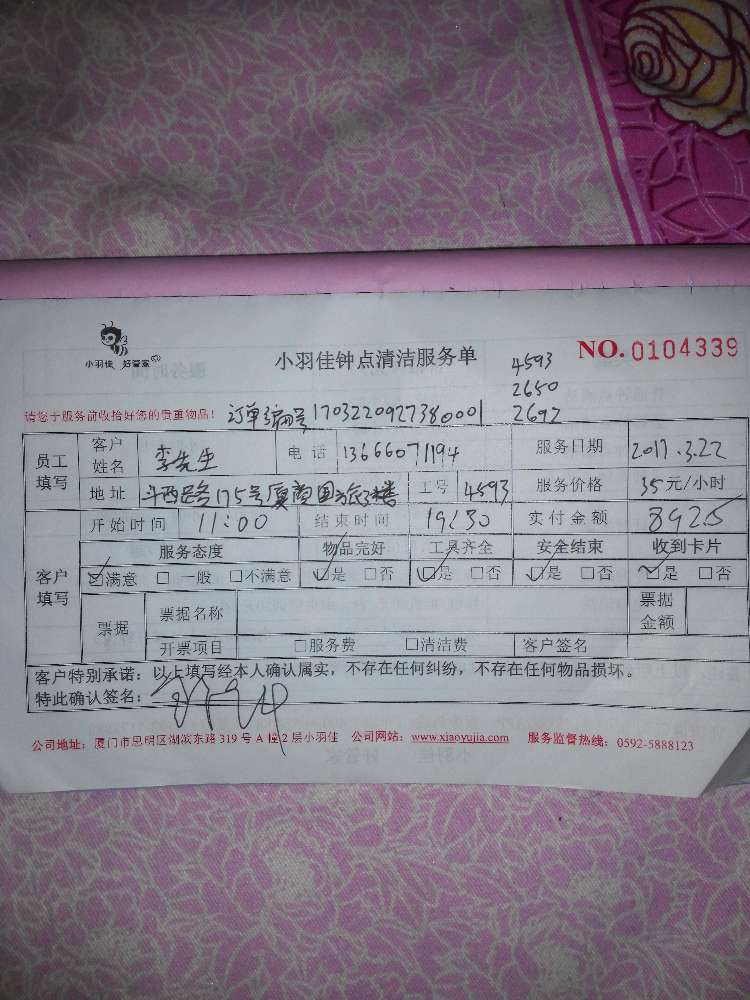 小羽佳 好管家
小羽佳钟点清洁服务单
NO.0104339
4593
2650
2692
请您于服务前收拾好您的贵重物品! 订单编号1703220927380001
员工填写 客户姓名 李先生 电话 13666071194 服务日期 2017.3.22
地址 斗西路175号厦商国旅3楼 工号 4593 服务价格 35元/小时
开始时间 11:00 结束时间 19:30 实付金额 892.5
客户填写 服务态度 物品完好 工具齐全 安全结束 收到卡片
☑满意 □一般 □不满意 ☑是 □否 ☑是 □否 ☑是 □否 ☑是 □否
票据 票据名称 票据金额
开票项目 □服务费 □清洁费 客户签名
客户特别承诺:以上填写经本人确认属实,不存在任何纠纷,不存在任何物品损坏。
特此确认签名:
公司地址:厦门市思明区湖滨东路319号A幢2层小羽佳 公司网站:www.xiaoyujia.com 服务监督热线:0592-5888123